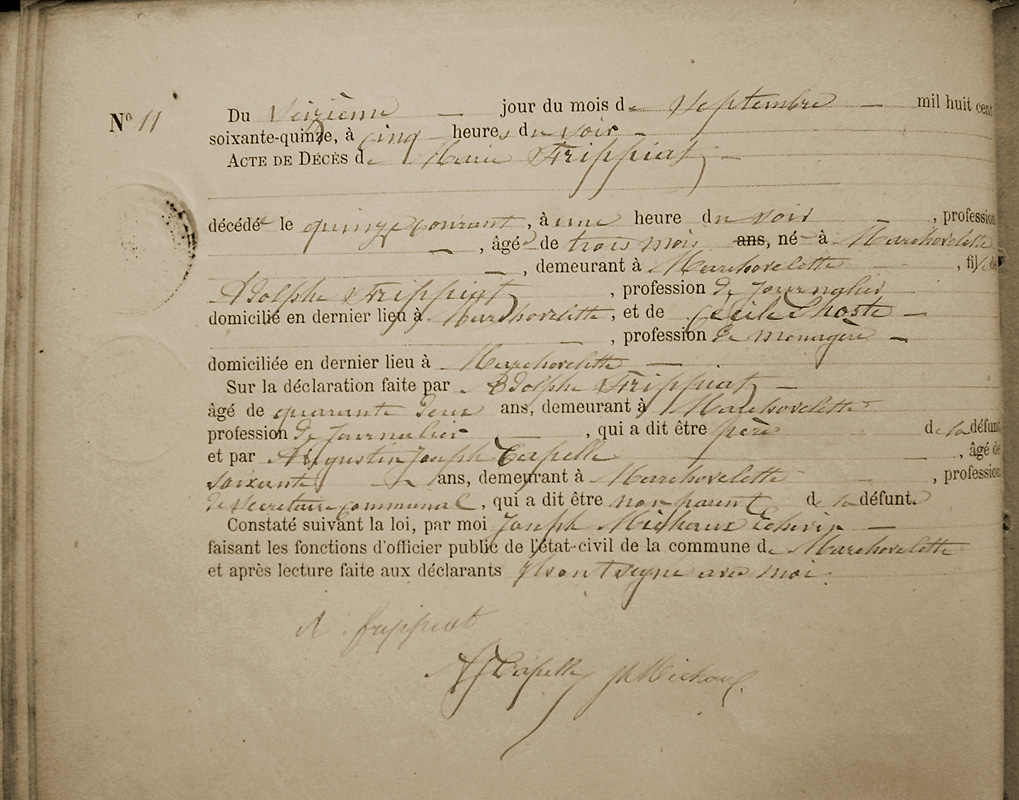 N° 11
Du Seizième jour du mois de Septembre mil huit cent
soixante-quinze, à cinq heures du soir
ACTE DE DÉCÈS de Marie Frippiat
décédée le quinze courant, à une heure du soir, profession
, âgée de trois mois ans, née à Marchovelette
, demeurant à Marchovelette, fille de
Adolphe Frippiat, profession de journalier
domicilié en dernier lieu à Marchovelette, et de Cécile Lhoste
, profession de ménagère
domiciliée en dernier lieu à Marchovelette
Sur la déclaration faite par Adolphe Frippiat
âgé de quarante deux ans, demeurant à Marchovelette
profession de journalier, qui a dit être père de la défunte
et par Augustin Joseph Capelle, âgé de
soixante ans, demeurant à Marchovelette, profession
de secrétaire communal, qui a dit être non parent de la défunte
Constaté suivant la loi, par moi Joseph Michaux Echevin
faisant les fonctions d'officier public de l'état-civil de la commune de Marchovelette
et après lecture faite aux déclarants Ils ont signé avec moi.
A. frippiat
AJ Capelle J Michaux